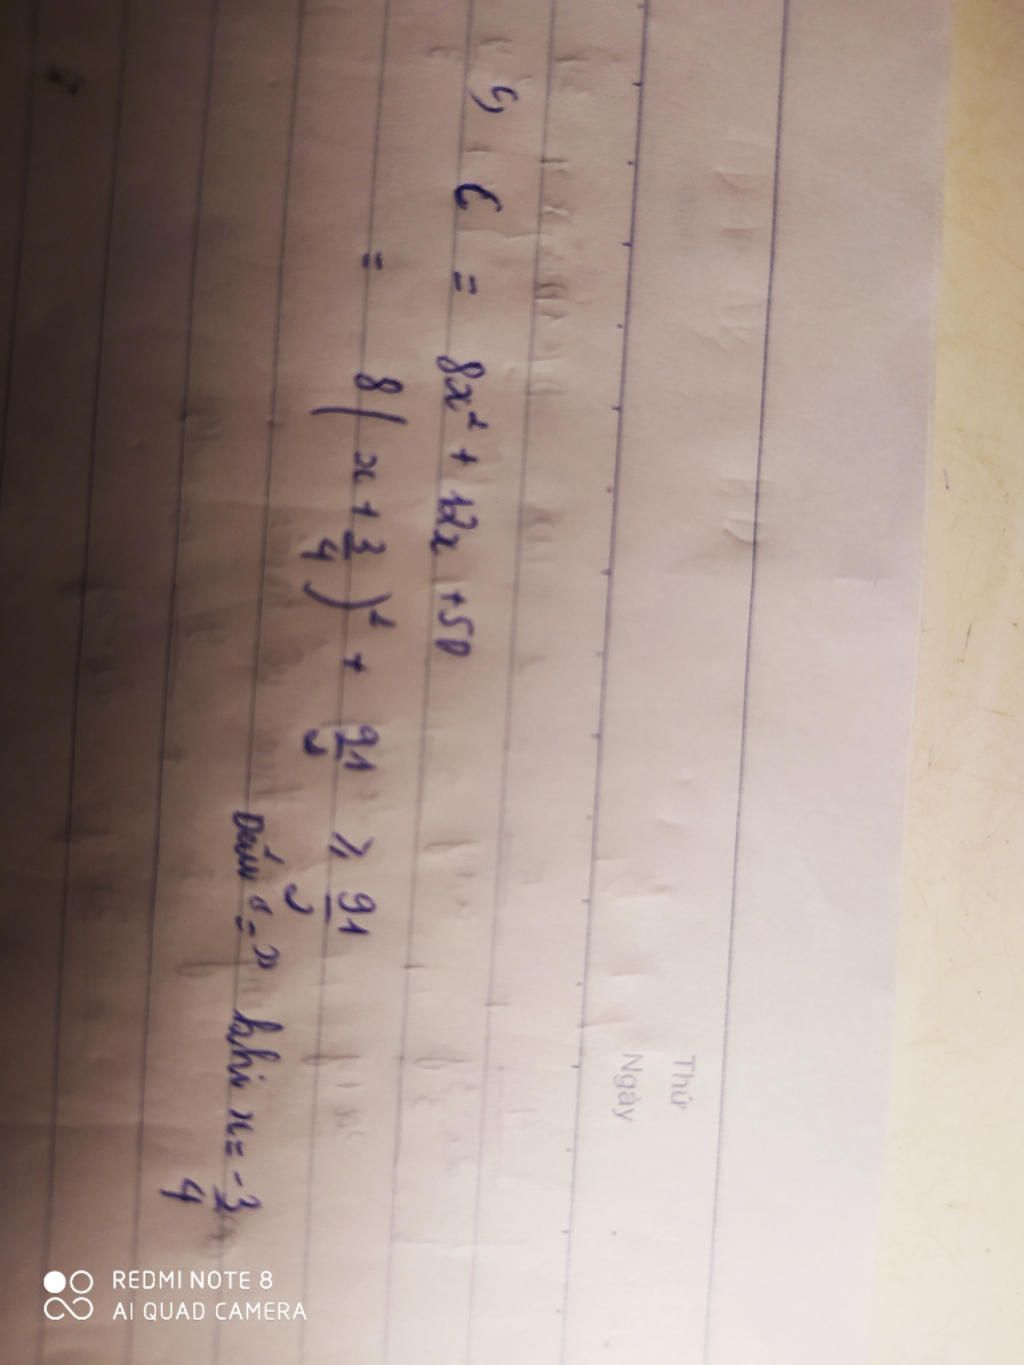 Thứ
Ngày
c, C = 8x² + 12x + 50
= 8(x + 3/4)² + 91/2 ≥ 91/2
Dấu "=" khi x = -3/4
REDMI NOTE 8
AI QUAD CAMERA